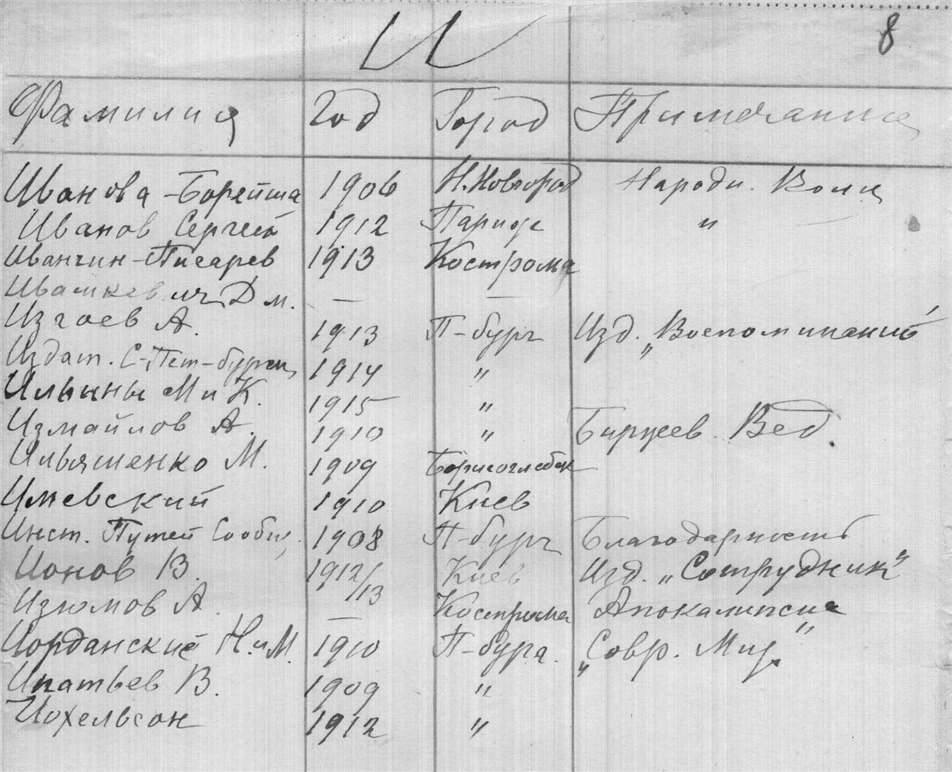 И 8
Фамилия Год Город Примечание
Иванова-Борейша 1906 Н.Новгород Народн. Воли
Иванов Сергей 1912 Париж "
Иванчин-Писарев 1913 Кострома
Ивашкевич Дм. — —
Изгоев А. 1913 П-бург Изд. „Воспоминаний"
Издат. С-Пет-бургск. 1914 "
Ильины М и К. 1915 "
Измайлов А. 1910 " Биржев. Вед.
Ильяшенко М. 1909 Борисоглебск
Имевский 1910 Киев
Инст. Путей Сообщ. 1908 П-бург Благодарность
Ионов В. 1912/13 Киев Изд. „Сотрудник"
Изюмов А. — Кострома Апокалипсис
Иорданские Н.иМ. 1910 П-бург. „Совр. Мир"
Ипатьев В. 1909 "
Иохельсон 1912 "